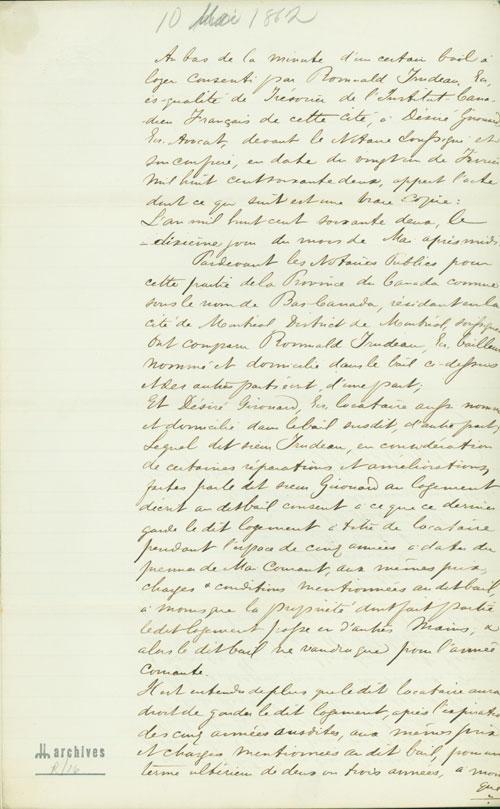 10 Mai 1862
Au bas de la minute d'un certain bail à
loyer consenti par Romuald Trudeau, Ec,
es-qualité de Trésorier de l'Institut Cana-
dien Français de cette cité, à Désiré Girouard
Ec. Avocat, devant le Notaire Soussigné et
son confrère, en date du vingt un de Fevrier
mil huit cent soixante deux, appert l'acte
dont ce qui suit est une vraie copie:
L'an mil huit cent soixante deux, le
dixième jour du mois de Mai après midi
Pardevant les Notaires Publics pour
cette partie de la Province du Canada connue
sous le nom de Bas-Canada, résidant en la
cité de Montréal District de Montréal, soussignés
Ont comparu Romuald Trudeau, Ec, bailleur
nommé et domicilié dans le bail ci-dessus
et des autres parts écrit, d'une part;
Et Désiré Girouard, Ec, locataire aussi nommé
et domicilié dans le bail susdit, d'autre part;
Lequel dit sieur Trudeau, en considération
de certaines réparations et améliorations,
faites par le dit sieur Girouard au logement
décrit au dit bail consent à ce que ce dernier
garde le dit logement à titre de locataire
pendant l'espace de cinq années à dater du
premier de Mai Courant, aux mêmes prix,
charges & conditions mentionnées au dit bail,
à moins que la propriété dont fait partie
le dit logement passe en d'autres mains, &
alors le dit bail ne vaudra que pour l'année
courante.
Il est entendu de plus que le dit locataire aura
droit de garder le dit logement, après l'expiration
des cinq années susdites, aux mêmes prix
et charges mentionnées au dit bail, pour un
terme ultérieur de deux ou trois années, à moins
que
archives
P/16